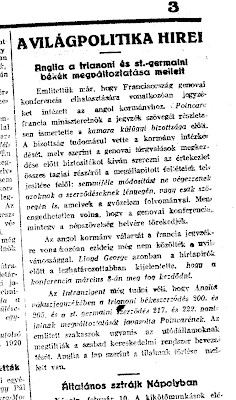 3
A VILÁGPOLITIKA HIREI
Anglia a trianoni és st.-germaini
békék megváltoztatása mellett
Említettük már, hogy Franciaország genovai
konferencia elhalasztására vonatkozóan jegyzé-
ket intézett az angol kormányhoz. Poincaré
francia miniszterelnök a jegyzék szövegét részlete-
sen ismertette a kamara külügyi bizottsága előtt.
A bizottság tudomásul vette a kormány intézke-
dését, mely szerint a genovai tárgyalások megkez-
dése előtt biztosítékot kíván szerezni az értekezlet
összes tagjai részéről a megállapított feltételek tel-
jesítése felől: semmiféle módosítást ne végezzenek
azoknak a szerződéseknek lényegén, vagy csak szö-
vegén is, amelyek a győzelem folyományai. Meg-
engedhetetlen volna, hogy a genovai konferencia,
mintegy a népszövetség helyére törekedjék.
Az angol kormány válaszát a francia jegyzék-
re vonatkozóan eddig még nem közölték a nyil-
vánossággal. Lloyd George azonban a hirlapirók
előtt a leghatározottabban kijelentette, hogy a
konferencia március 8-án meg fog kezdődni.
Az Intransigeant még tudni véli, hogy Anglia
válaszjegyzékében a trianoni békeszerződés 200. és
205. és a st. germaini szerződés 217. és 222. pont-
jainak megváltoztatását javasolta Poincarénak. Az
említett szakaszok ugyanis az utódállamoknak
megtiltják a szabad kereskedelmi rendszer beveze-
tését. Anglia a lap szerint a tilalmak törlése mel-
lett van.
Általános sztrájk Nápolyban